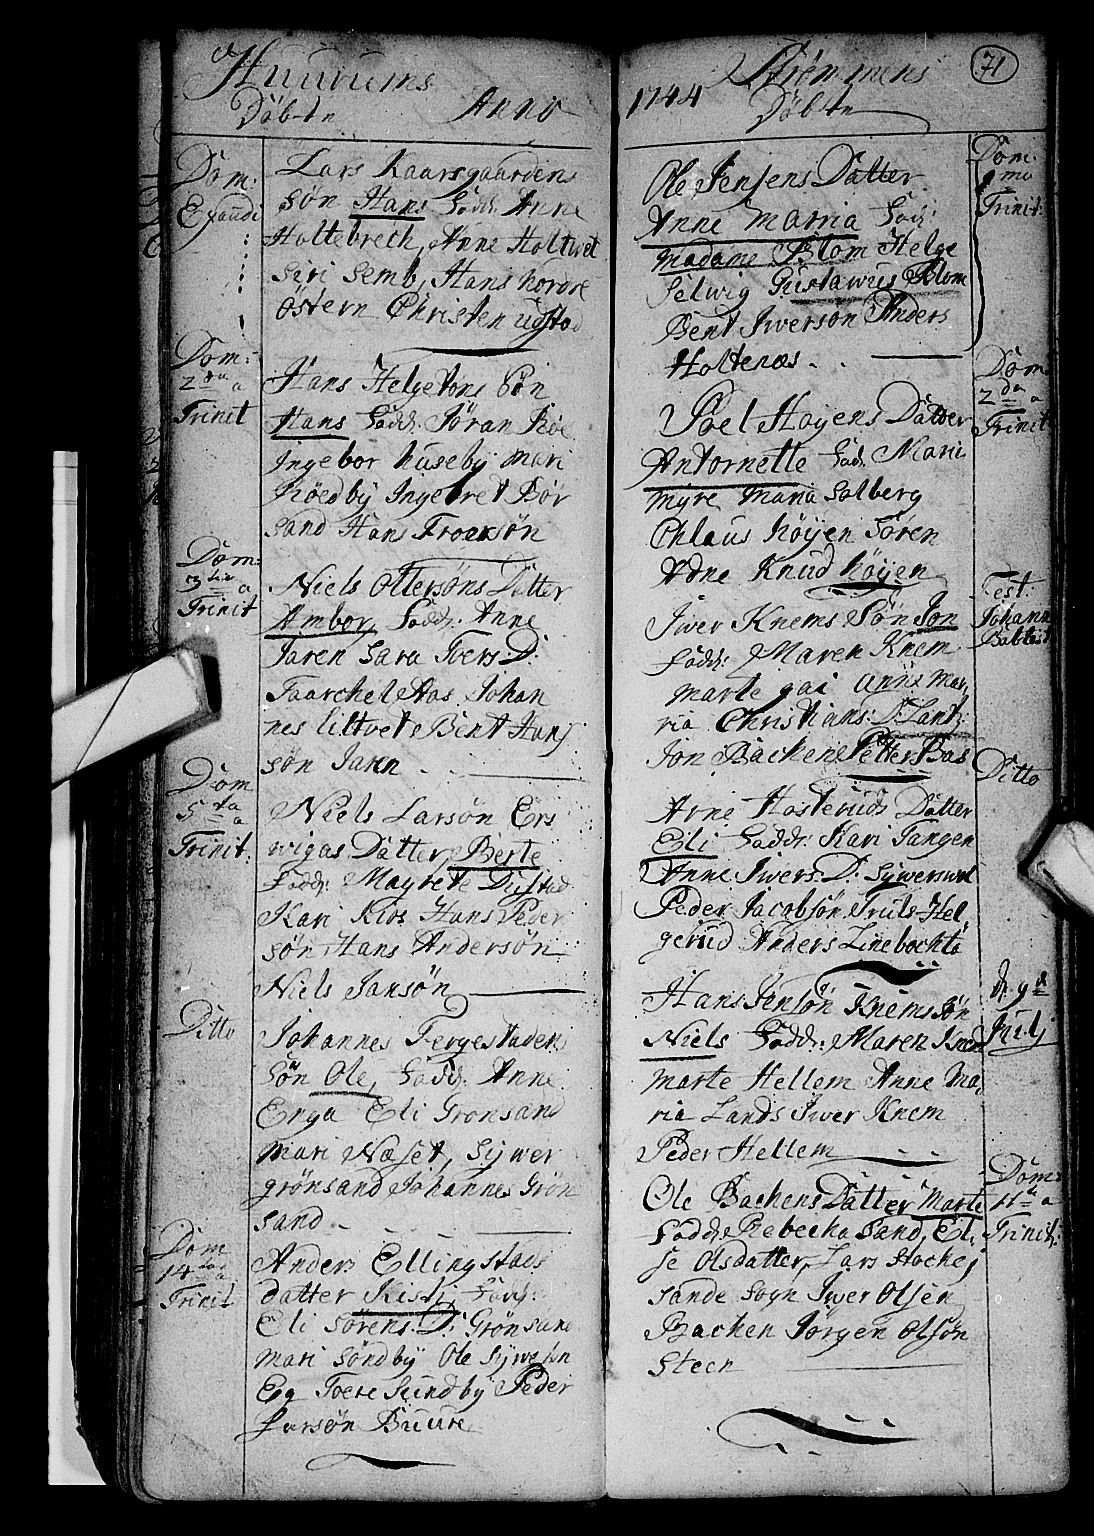 Huurums
Döbte Anno
Dom:
Exaudi
Lars Kaarsgaardens
søn Hans Fadd: Anne
Holtebrech, Anne Holtvet
Siri Semb, Hans nordre
Østern Christen ugstad
Dom:
2da a
Trinit
Hans Helgetons Søn
Hans Fadd: Jöran Röe
Ingebor huseby mari
Röedby Ingebret Bör
sand Hans Troersøn
Dom:
3tia a
Trinit
Niels Ottersøns Datter
Ambor, Fadd: Anne
Jaren Sara Toers D:
Taarchel Aas Johan
nes littvet Bent Hans
søn Jaren
Dom
5ta a
Trinit:
Niels Larsøn Ers
wigas Datter, Berte
Fadd: Magrete Dystad
Kari Klos Hans Peder
søn Hans Andersøn
Niels Jansøn
Ditto
Johannes Fergestadens
Søn Ole, Fadd: Anne
Enga Eli Grönsand
Mari Næset, Sywer
grönsand Johannes Grön
sand
Dom
14 a
Trinit
Anders Ellingstads
datter Kisti Fadd:
Eli Sörens D: Grönsand
Mari Söndby Ole Sywersen
Eg Toere Sundby Peder
Larsøn Buure
71
Strömmens
1744 Döbte
Dom:
1ma
Trinit:
Ole Jensens Datter
Anne Marria Fad:
Madame Blom Helge
Selwig Gustawus Blom
Bent Iwersøn Anders
Holtenæs
Dom
2da a
Trinit
Poel Hoyens Datter
Antornette Fad: Mari
Myre Maria Solberg
Chlaus höyen Sören
Ødne Knud höyen
Fest:
Johann
Babtist
Iwer Knems Søn Jon
Fadd: Maren Knem
Marte gai Anne Mar
ria Christians: D: Lantz:
Jon Backen Petter Bas
Ditto
Arne Hasteruds Datter
Eli Fadd: Kari Tangen
Anne Iwers D: Sywerswol
Peder Jacobsøn Truls Hel
gerud Anders Linebochta
d 9de
Julj
Hans Jensøn Knems søn
Niels Fadd: Maren Knem
Marte Hellem Anne Ma
ria Lands Iwer Knem
Peder Hellem
Dom:
4ta a
Trinit:
Ole Bachens Datter Marte
Fadd: Rebecka Sand, Eli
se Olsdatter, Lars Stochej
sande Sogn Iwer Olsen
Bachen Jörgen Olsön
Steen